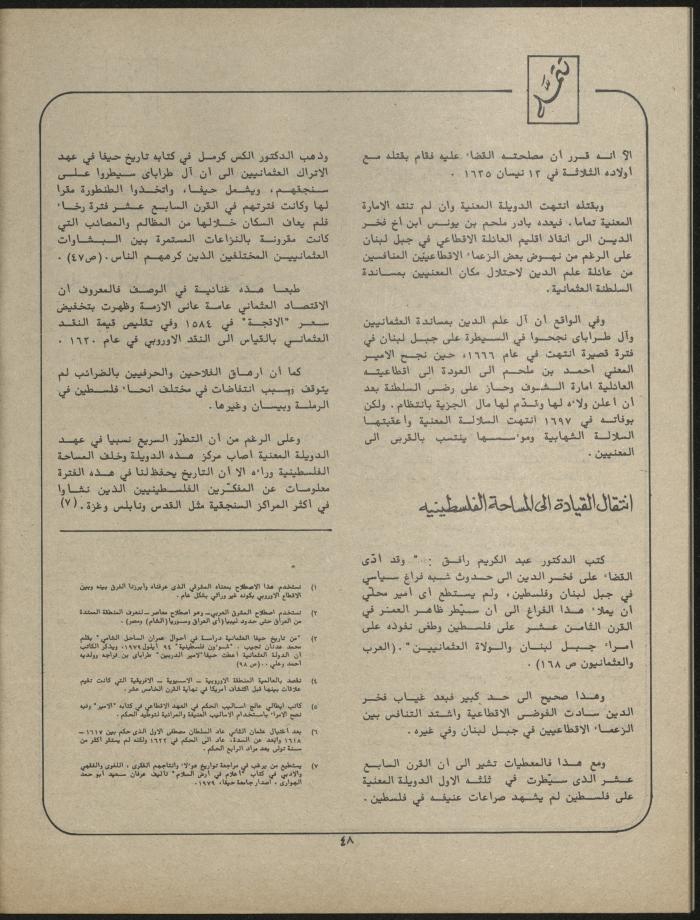 تتمة
الا انه قرر ان مصلحته القضاء عليه فقام بقتله مع
اولاده الثلاثة في ١٣ نيسان ١٦٣٥ .
وبقتله انتهت الدويلة المعنية وان لم تنته الامارة
المعنية تماما، فبعده بادر ملحم بن يونس ابن اخ فخر
الدين الى انقاذ اقليم العائلة الاقطاعي في جبل لبنان
على الرغم من نهوض بعض الزعماء الاقطاعيّين المنافسين
من عائلة علم الدين لاحتلال مكان المعنيين بمساندة
السلطنة العثمانية.
وفي الواقع أن آل علم الدين بمساندة العثمانيين
وآل طراباى نجحوا في السيطرة على جبل لبنان في
فترة قصيرة انتهت في عام ١٦٦٦، حين نجح الامير
المعني أحمد بن ملحم الى العودة الى اقطاعيته
العائلية امارة الشوف وحاز على رضى السلطنة بعد
أن أعلن ولاءه لها وقدّم لها مال الجزية بانتظام. ولكن
بوفاته في ١٦٩٧ انتهت السلالة المعنية وأعقبتها
السلالة الشهابية وموءسسها ينتسب بالقربى الى
المعنيين .
انتقال القيادة الى المساحة الفلسطينيه
كتب الدكتور عبد الكريم رافق : " وقد ادّى
القضاء على فخر الدين الى حدوث شبه فراغ سياسي
في جبل لبنان وفلسطين، ولم يستطع أى أمير محلّي
أن يملاء هذا الفراغ الى أن سيطر ظاهر العمر في
القرن الثامن عشر على فلسطين وطغى نفوذه على
امراء جبل لبنان والولاة العثمانيين".(العرب
والعثمانيون ص ١٦٨) .
وهذا صحيح الى حد كبير فبعد غياب فخر
الدين سادت الفوضى الاقطاعية واشتد التنافس بين
الزعماء الاقطاعيين في جبل لبنان وفي غيره .
ومع هذا فالمعطيات تشير الى أن القرن السابع
عشر الذى سيّطرت في ثلثه الاول الدويلة المعنية
على فلسطين لم يشهد صراعات عنيفه في فلسطين.
وذهب الدكتور الكس كرمل في كتابه تاريخ حيفا في عهد
الاتراك العثمانيين الى أن آل طراباى سيطروا على
سنجقهم، ويشمل حيفا، واتخذوا الطنطورة مقرا
لها وكانت فترتهم في القرن السابع عشر فترة رخاء
فلم يعاف السكان خلالها من المظالم والمصائب التي
كانت مقرونة بالنزاعات المستمرة بين البشاوات
العثمانيين المختلفين الذين كرههم الناس.(ص٤٧) .
طبعا هذه غنائية في الوصف فالمعروف أن
الاقتصاد العثماني عامة عانى الازمة وظهرت بتخفيض
سعر "الاقجة" في ١٥٨٤ وفي تقليص قيمة النقد
العثماني بالقياس الى النقد الاوروبي في عام ١٦٢٠ .
كما أن ارهاق الفلاحين والحرفيين بالضرائب لم
يتوقف وسبب انتفاضات في مختلف انحاء فلسطين في
الرملة وبيسان وغيرها.
وعلى الرغم من أن التطوّر السريع نسبيا في عهد
الدويلة المعنية أصاب مركز هذه الدويلة وخلف المساحة
الفلسطينية وراءه الا أن التاريخ يحفظ لنا في هذه الفترة
معلومات عن المفكّرين الفلسطينيين الذين نشاوا
في أكثر المراكز السنجقية مثل القدس ونابلس وغزة. (٧)
١) نستخدم هذا الاصطلاح بمعناه المشرقي الذى عرفناه وأبرزنا الفرق بينه وبين
الاقطاع الاوروبي بكونه غير وراثي بشكل عام.
٢) نستخدم اصطلاح المشرق العربي - وهو اصطلاح معاصر - لنعرف المنطقة الممتدة
من العراق حتى حدود ليبيا (أى العراق وسوريا (الشام) ومصر) .
٣) "من تاريخ حيفا العثمانية دراسة في أحوال عمران الساحل الشامي" بقلم
محمد عدنان نجيب . "شوءون فلسطينية" ٩٤ أيلول ١٩٧٩، ويذكر الكاتب
أن الدولة العثمانية أعطت حيفا "لامير الدربين" طراباى بن قراجه وولديه
أحمد وعلي .. (ص ٩٨)
٤) نقصد بالعالمية المنطقة الاوروبية - الاسيوية - الافريقية التي كانت تقيم
علاقات بينها قبل اكتشاف أمريكا في نهاية القرن الخامس عشر.
٥) كاتب ايطالي عالج أساليب الحكم في العهد الاقطاعي في كتابه "الامير" وفيه
نصح الامراء باستخدام الاساليب العنيفة والمرائية لتوطيد الحكم.
٦) بعد اغتيال عثمان الثاني عاد السلطان مصطفى الاول الذى حكم بين ١٦١٧ -
١٦١٨ وابعد عن السدة، عاد الى الحكم في ١٦٢٢ ولكنه لم يستقر أكثر من
سنة تولى بعد مراد الرابع الحكم.
٧) يستطيع من يرغب في مراجعة تواريخ هوءلاء وانتاجهم الفكرى، اللغوى والفقهي
والادبي في كتاب "أعلام في أرض السلام" تأليف عرفان سعيد أبو حمد
الهوارى، اصدار جامعة حيفا، ١٩٧٩.
٤٨